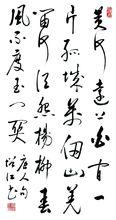 黄河远上白云间一
片孤城万仞山羌
笛何须怨杨柳春
风不度玉门关
唐人句